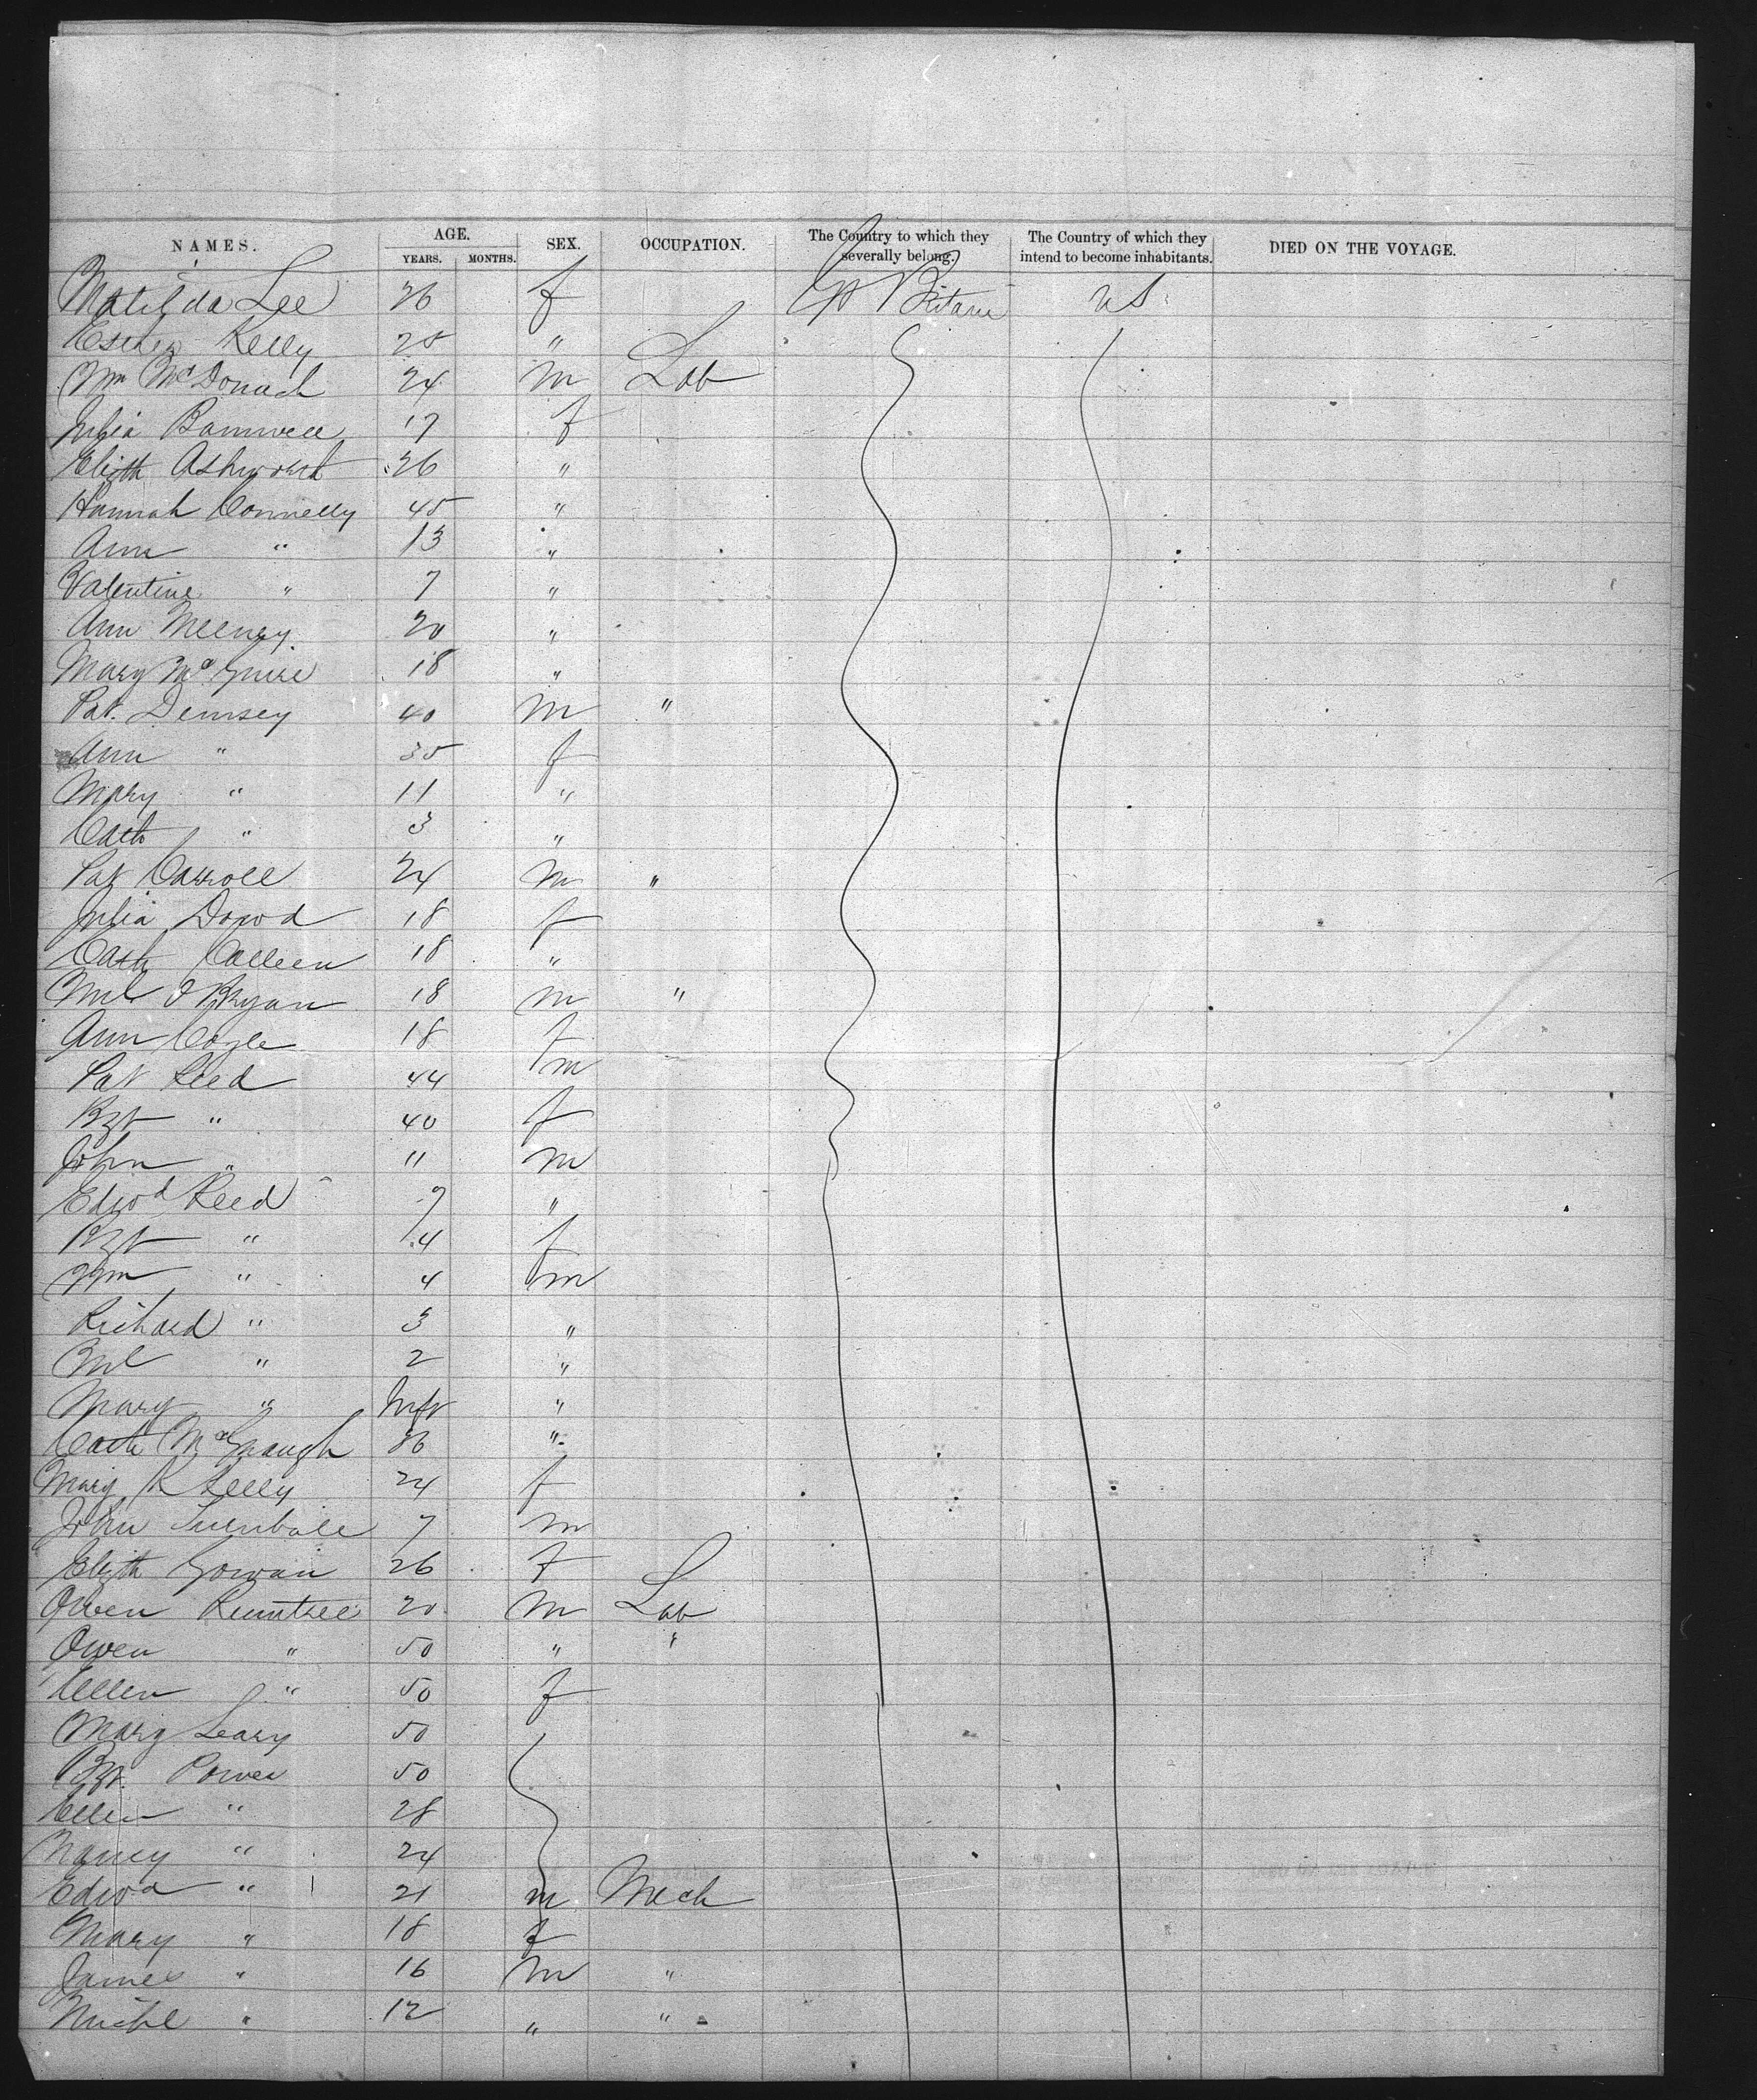 NAMES. AGE. SEX. OCCUPATION. The Country to which they severally belong. The Country of which they intend to become inhabitants. DIED ON THE VOYAGE.
YEARS. MONTHS.
Matilda Lee 26 f Gt Britain US
Esther Kelly 25 "
Wm McDonach 24 m Lab
Julia Bamwell 17 f
Elizth Ashworth 26 "
Hannah Connelly 45 "
Ann " 13 "
Valentine " 7 "
Ann Meeney 20 "
Mary McGuire 18 "
Pat. Demsey 40 m "
Ann " 35 f
Mary " 11 "
Cath " 3 "
Pat Carroll 24 m "
Julia Dowd 18 f
Cath Calleen 18 "
Ml O'Ryan 18 m "
Ann Coyle 18 f
Pat Reed 44 m
Bgt " 40 f
John " 11 m
Edwd Reed 9 "
Bgt " 4 f
Wm " 4 m
Richard " 3 "
Ml " 2 "
Mary " Inft "
Cath 36 "
Mary Kelly 24 f
John Turnbull 7 m
Elizth Gowan 26 f
Owen Rumtree 20 m Lab
Owen " 50 " "
Ellen " 50 f
Mary Leary 50
Bgt. Power 50
Ellen " 28
Nancy " 24
Edwd " 21 m Mech
Mary " 18 f
James " 16 m "
Michl " 12 " "